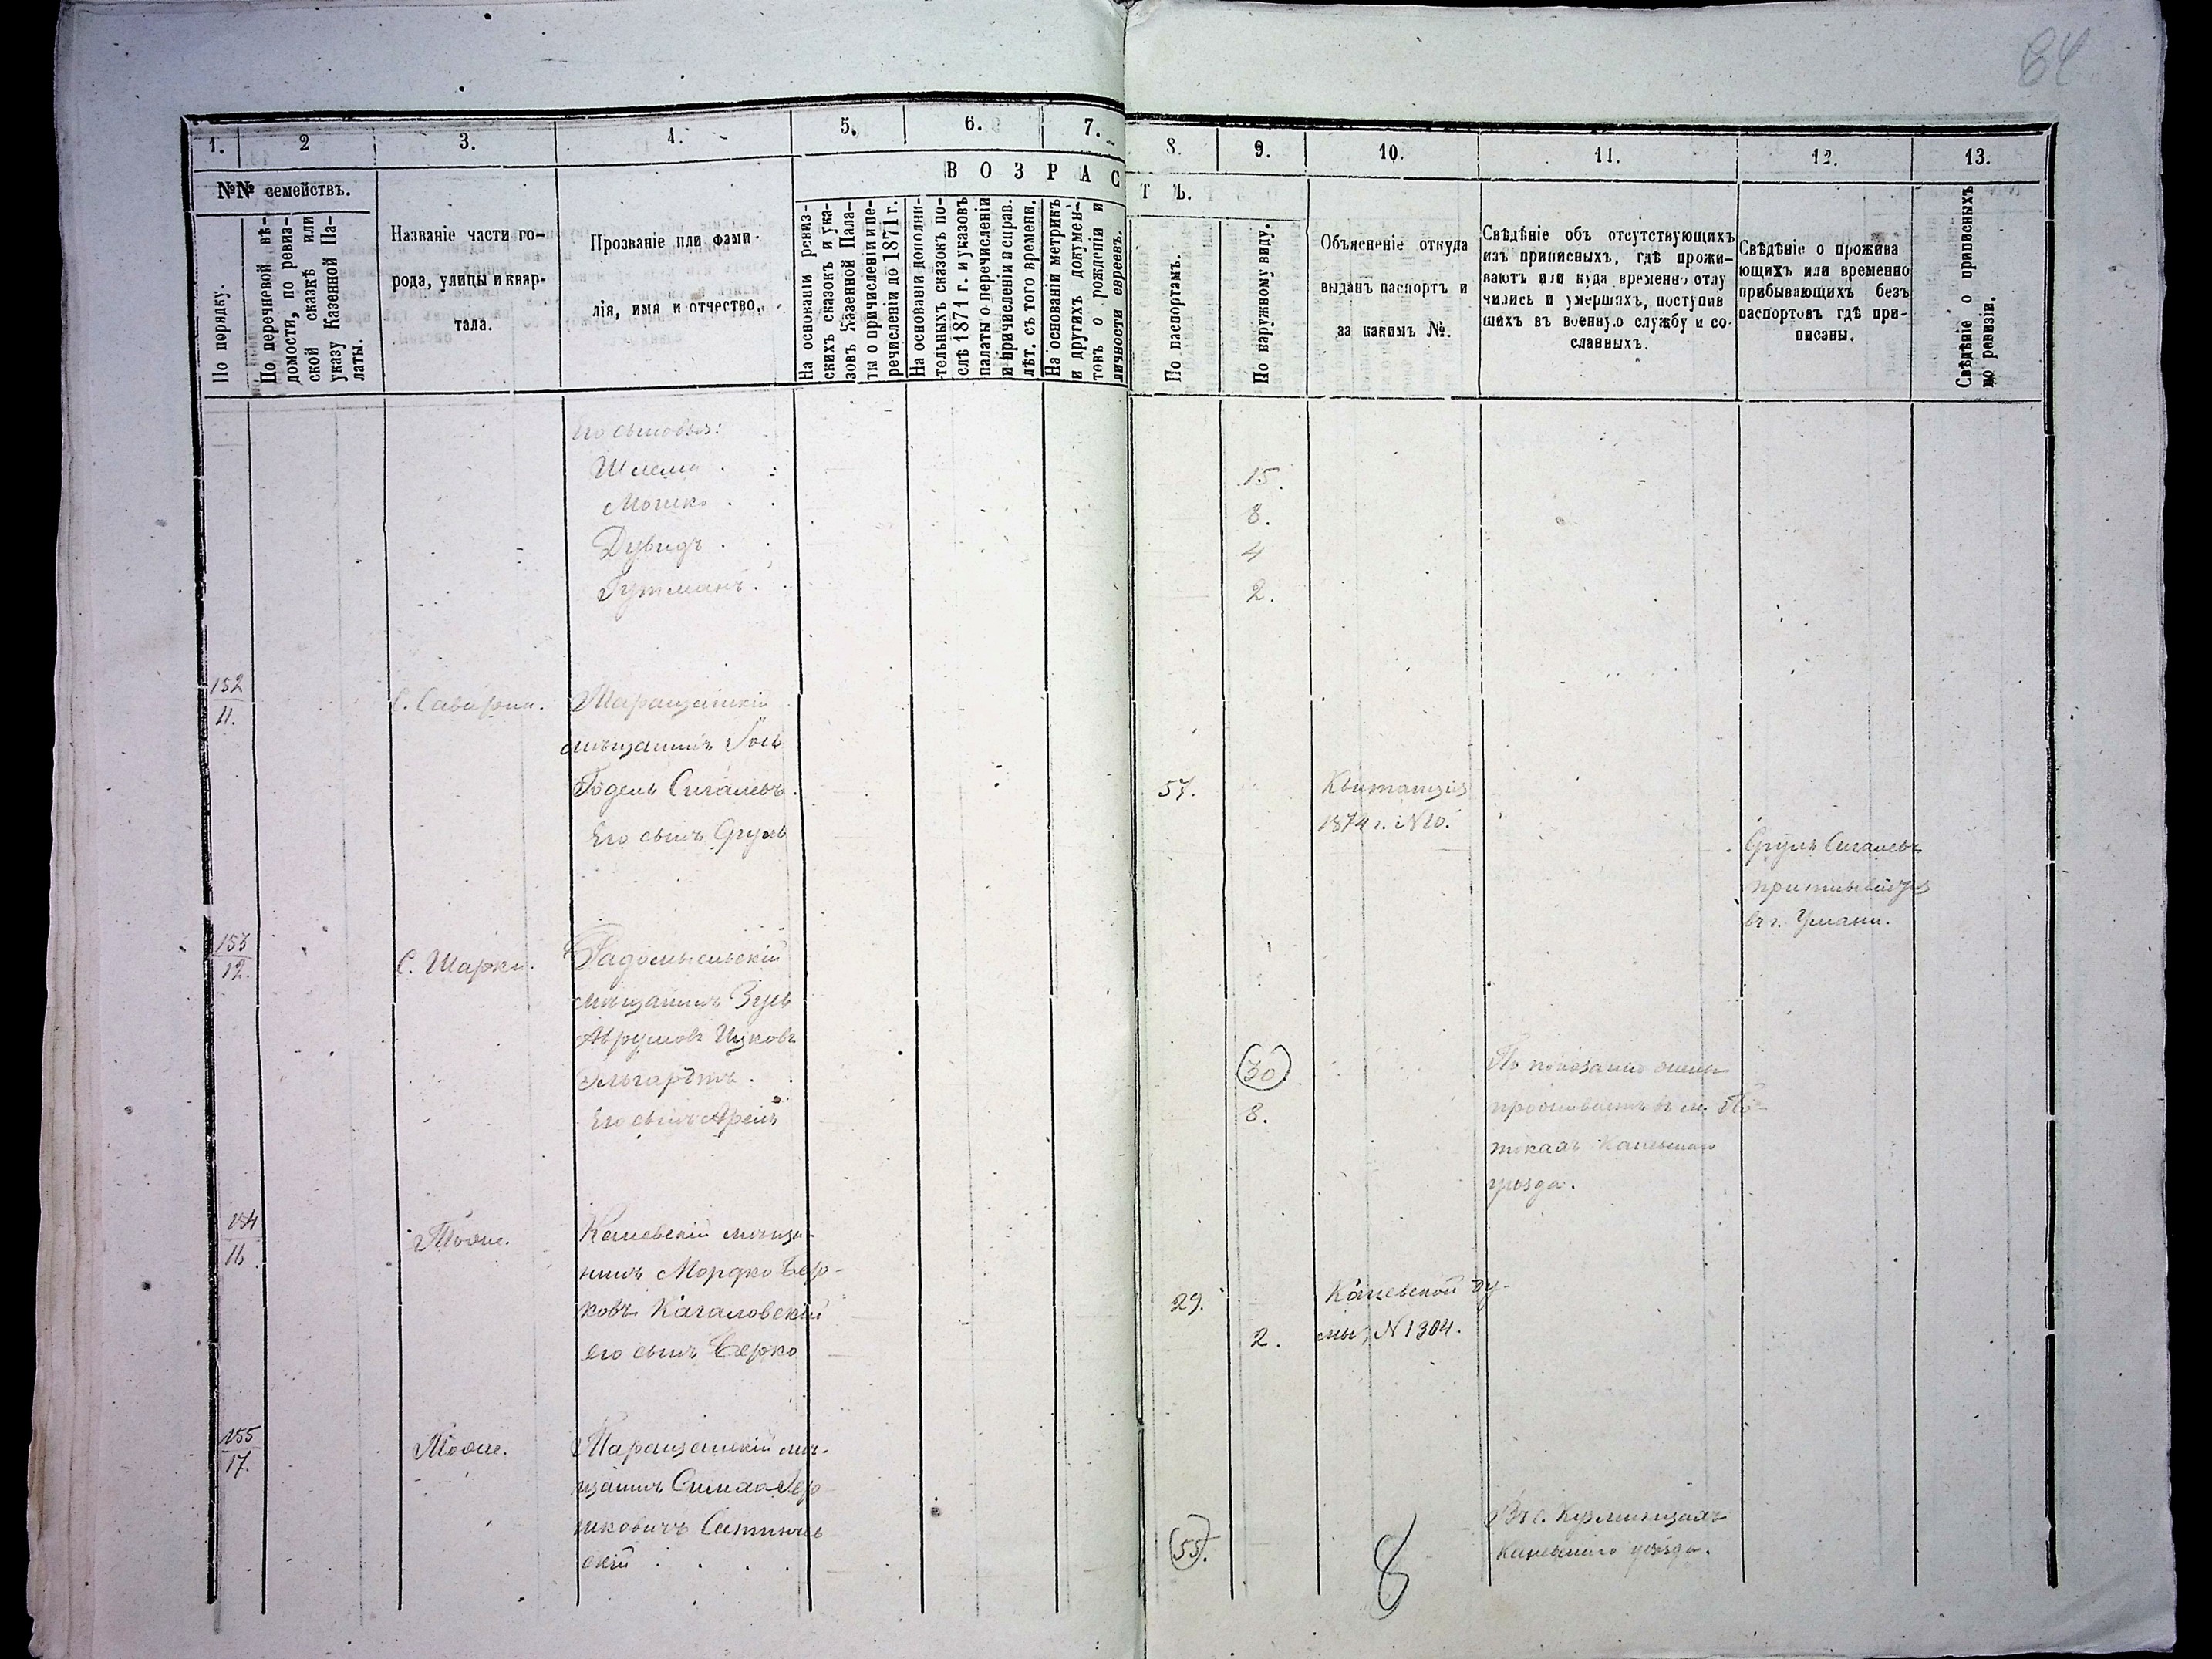 64
1.
2
3.
4.
5.
6.
7.
8.
9.
10.
11.
12.
13.
№№ семействъ.
По порядку.
По перечневой вѣ-
домости, по ревиз-
ской сказкѣ или
указу Казенной Па-
латы.
Названіе части го-
рода, улицы и квар-
тала.
Прозваніе или фами-
лія, имя и отчество.
ВОЗРАСТЪ.
На основаніи ревиз-
скихъ сказокъ и ука-
зовъ Казенной Пала-
ты о причисленіи и пе-
речисленіи до 1871 г.
На основаніи дополни-
тельныхъ сказокъ по-
слѣ 1871 г. и указовъ
палаты о перечисленіи
и причисленіи и справ.
лѣт. съ того времени.
На основаніи метрикъ
и другихъ докумен-
товъ о рожденіи и
личности евреевъ.
По паспортамъ.
По наружному виду.
Объясненіе откуда
выданъ паспортъ и
за какимъ №.
Свѣдѣніе объ отсутствующихъ
изъ приписныхъ, гдѣ прожи-
ваютъ или куда временно отлу
чились и умершихъ, поступив
шихъ въ военную службу и со-
сланныхъ.
Свѣдѣніе о прожива
ющихъ или временно
прибывающихъ безъ
паспортовъ гдѣ при-
писаны.
Свѣдѣніе о приписныхъ
по ревизіи.
его сыновья:
Шлема 15.
Мошко 8.
Дувидъ 4
Гутманъ 2.
152
11.
Таращанскій
мѣщанинъ
Годель Сигалевъ. 57. Квитанція
Его сынъ Срулъ 1874 г. №10.
Срулъ Сигалевъ
въ г. Умани.
153
12.
С. Шарки. Радомысльскій
мѣщанинъ Зусь
Аврумовъ Ицковъ
30
Его сынъ 8.
проживаетъ въ м. По-
токахъ Каневскаго
уѣзда.
154
16
Тоже. Каневскій мѣща-
нинъ Мордко Бер-
ковъ Кагаловскій 29. Каневской Ду-
его сынъ Берко 2. мы, N 1304.
155
17.
Тоже. Таращанскій мѣ-
щанинъ Симха Гер
шковичъ
скій 55.
Въ с. Кузьминцахъ
Каневскаго уѣзда.
8